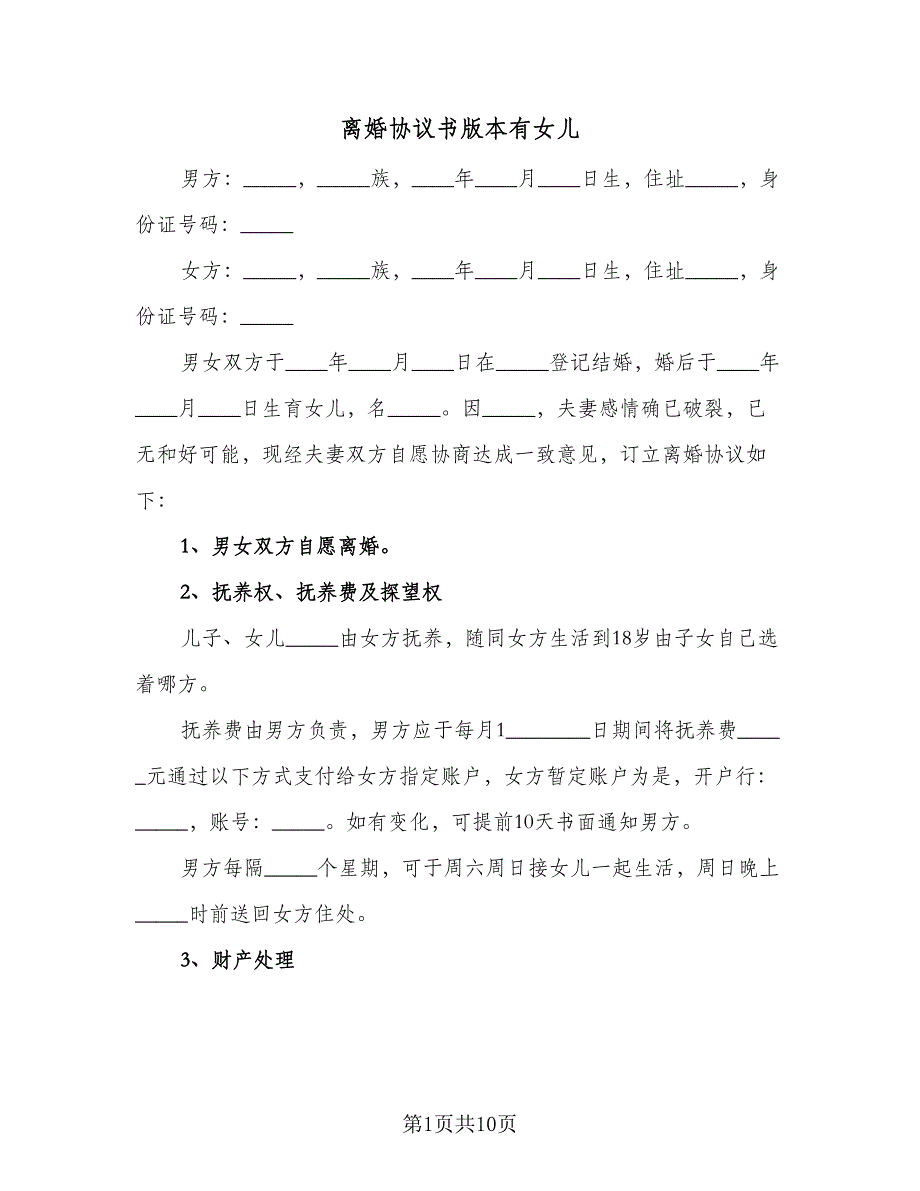 离婚协议书版本有女儿
男方：_____，_____族，____年____月____日生，住址_____，身
份证号码：_____
女方：_____，_____族，____年____月____日生，住址_____，身
份证号码：_____
男女双方于____年____月____日在_____登记结婚，婚后于____年
____月____日生育女儿，名_____。因_____，夫妻感情确已破裂，已
无和好可能，现经夫妻双方自愿协商达成一致意见，订立离婚协议如
下：
1、男女双方自愿离婚。
2、抚养权、抚养费及探望权
儿子、女儿_____由女方抚养，随同女方生活到18岁由子女自己选
着哪方。
抚养费由男方负责，男方应于每月1________日期间将抚养费____
_元通过以下方式支付给女方指定账户，女方暂定账户为是，开户行：
_____，账号：_____。如有变化，可提前10天书面通知男方。
男方每隔_____个星期，可于周六周日接女儿一起生活，周日晚上
_____时前送回女方住处。
3、财产处理
第1页共10页